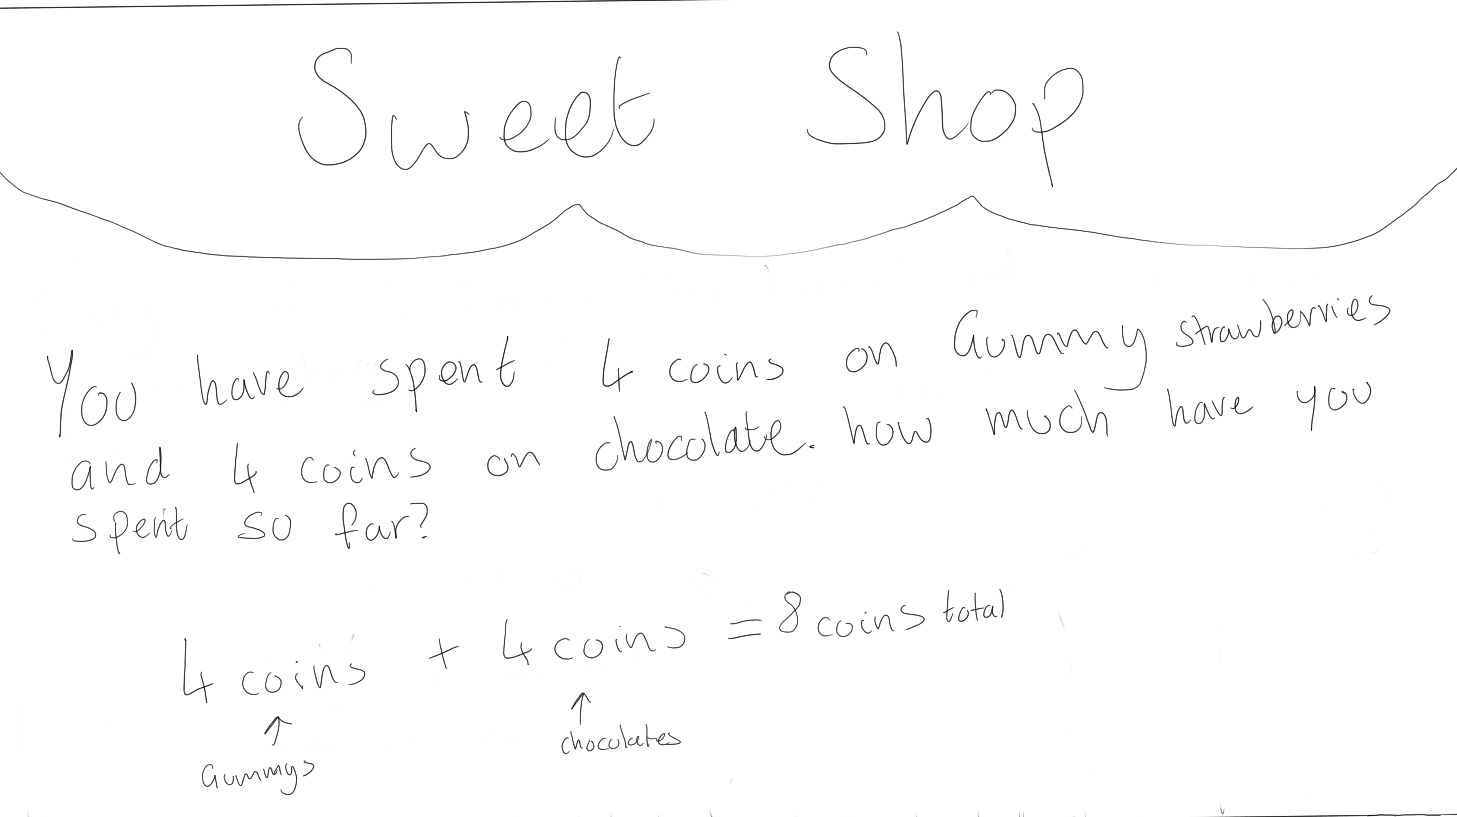 Sweet Shop
You have spent 4 coins on Gummy strawberries
and 4 coins on chocolate. how much have you
spent so far?
4 coins + 4 coins = 8 coins total
↑ ↑
Gummys chocolates